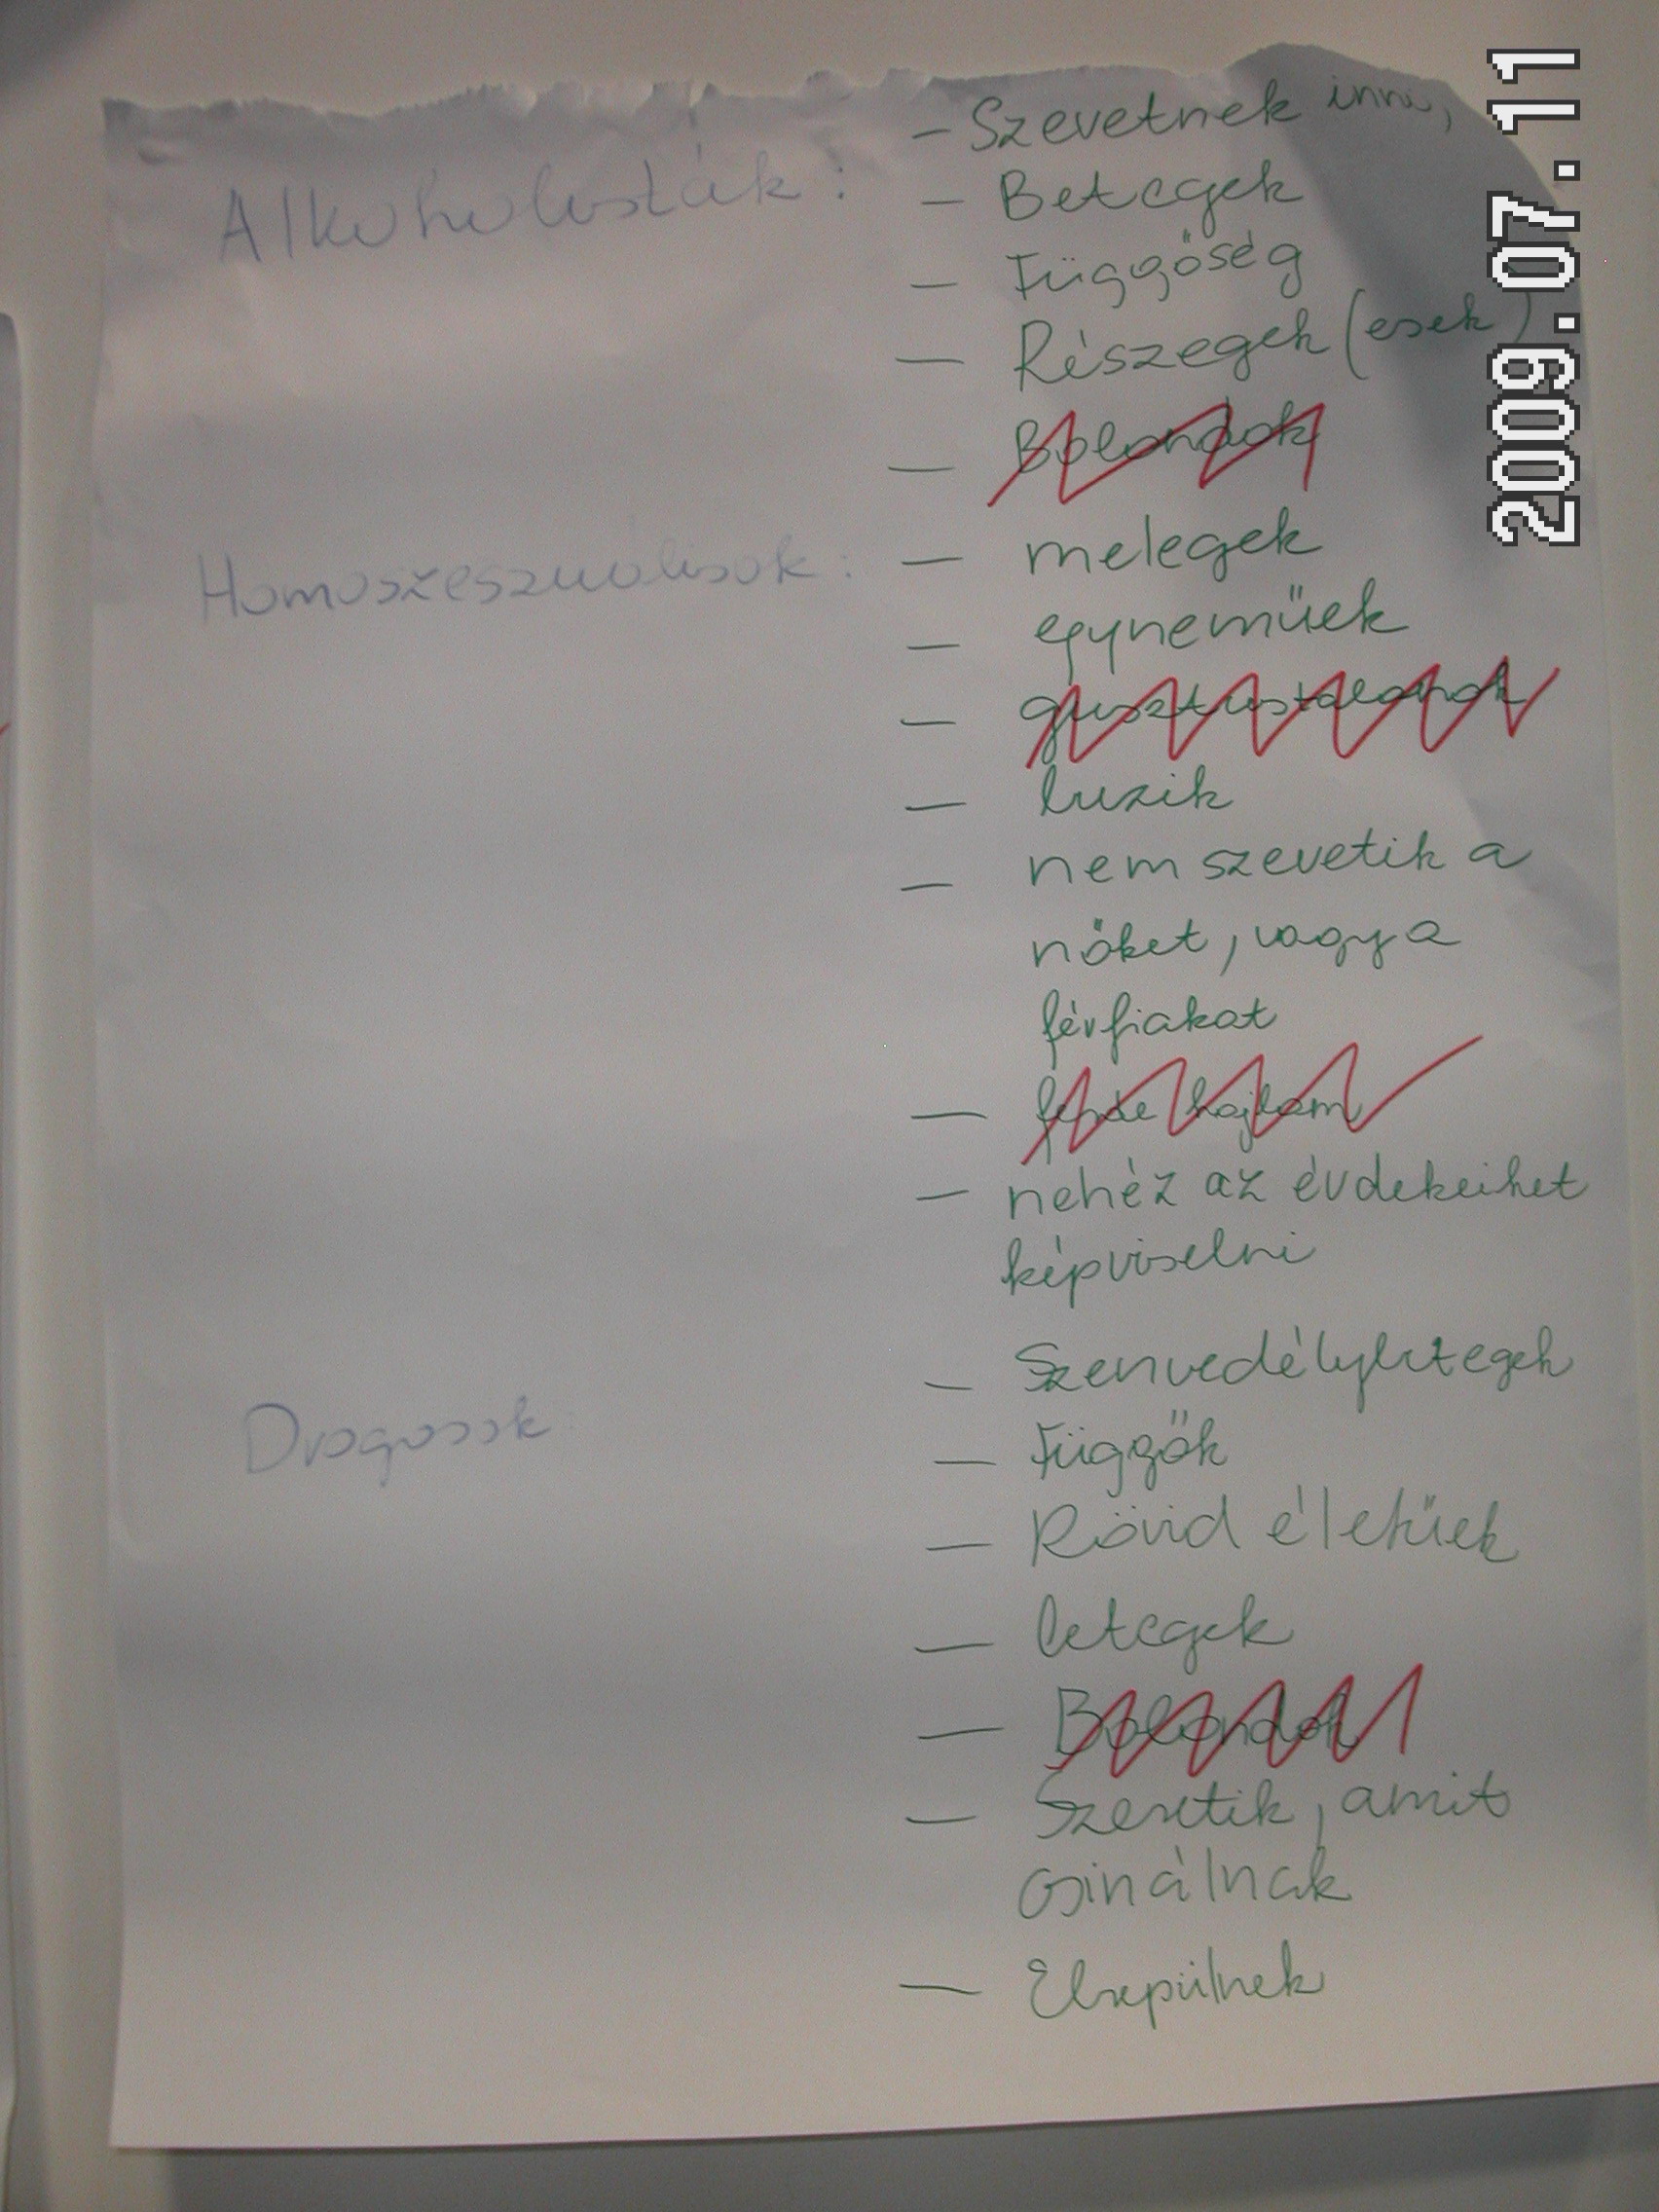 Alkoholisták:
- Szeretnek inni,
- Betegek
- Függőség
- Részegek (esek)
- Bolondok
Homoszexuálisok:
- melegek
- egyneműek
- gusztustalanok
- buzik
- nem szeretik a
nőket, vagy a
férfiakat
- ferde hajlam
- nehéz az érdekeiket
képviselni
Drogosok
- Szenvedélybetegek
- Függők
- Rövid életűek
- betegek
- Bolondok
- Szeretik, amit
csinálnak
- Elrepülnek
2009.07.11